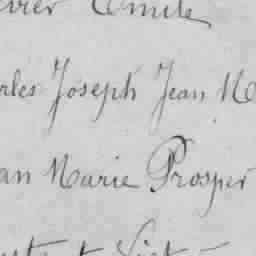 vrier Emile
rles Joseph Jean M
an Marie Prosper